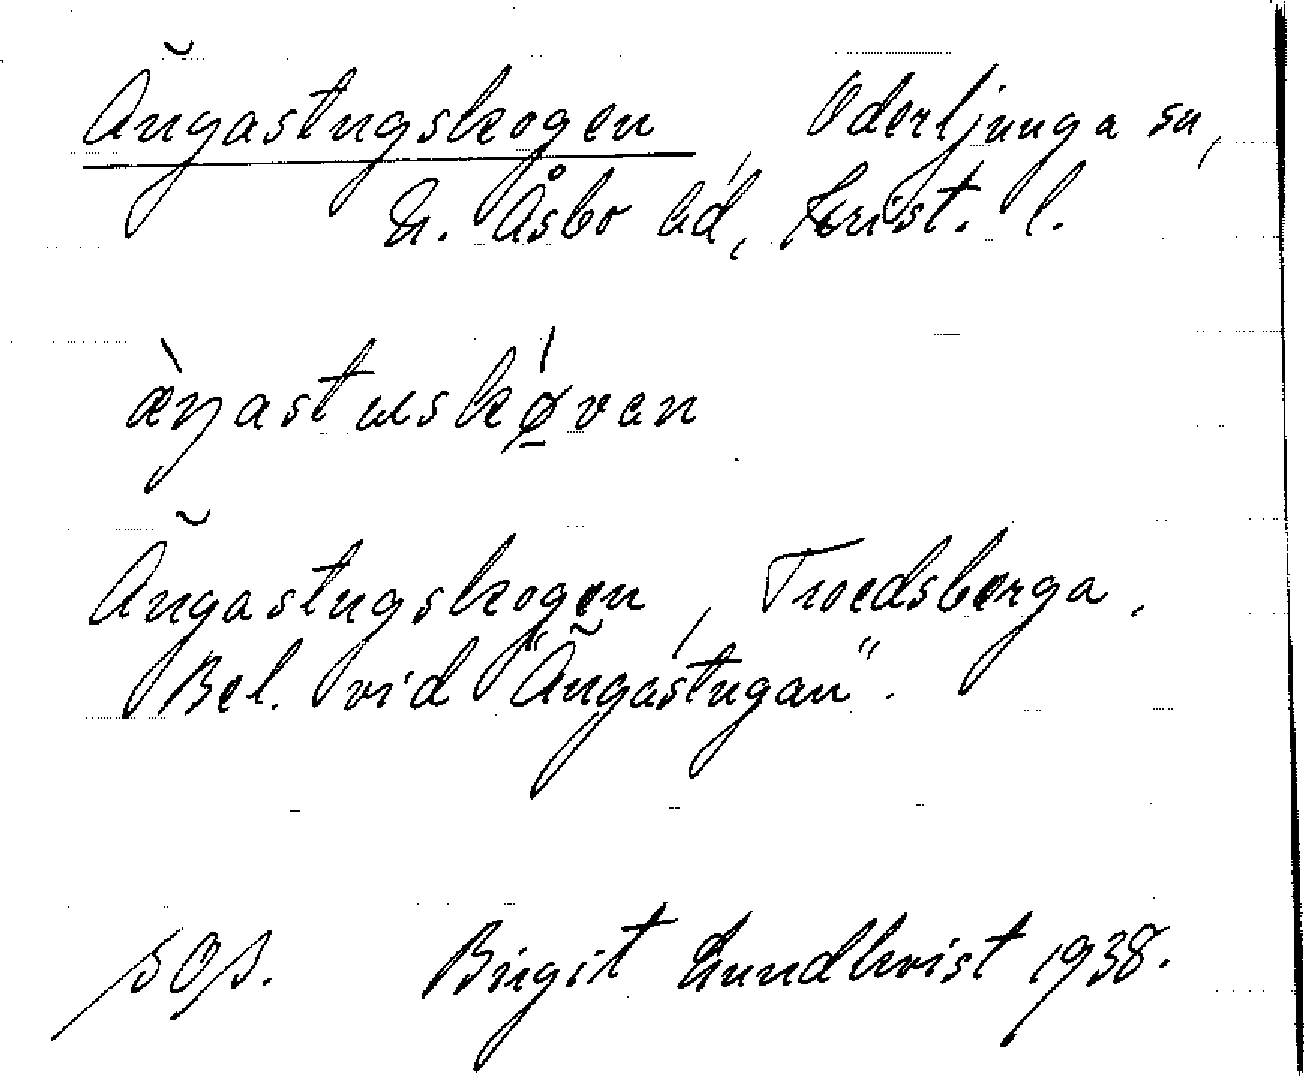 Ängastugskogen, Oderljunga sn,
N. Åsbo hd, Krist. l.
æ̀ŋastuskǿ̱van
Ängastugskogen, Troedsberga.
Bel. vid "Ängastugan".
sOs. Birgit Lundkvist 1938.